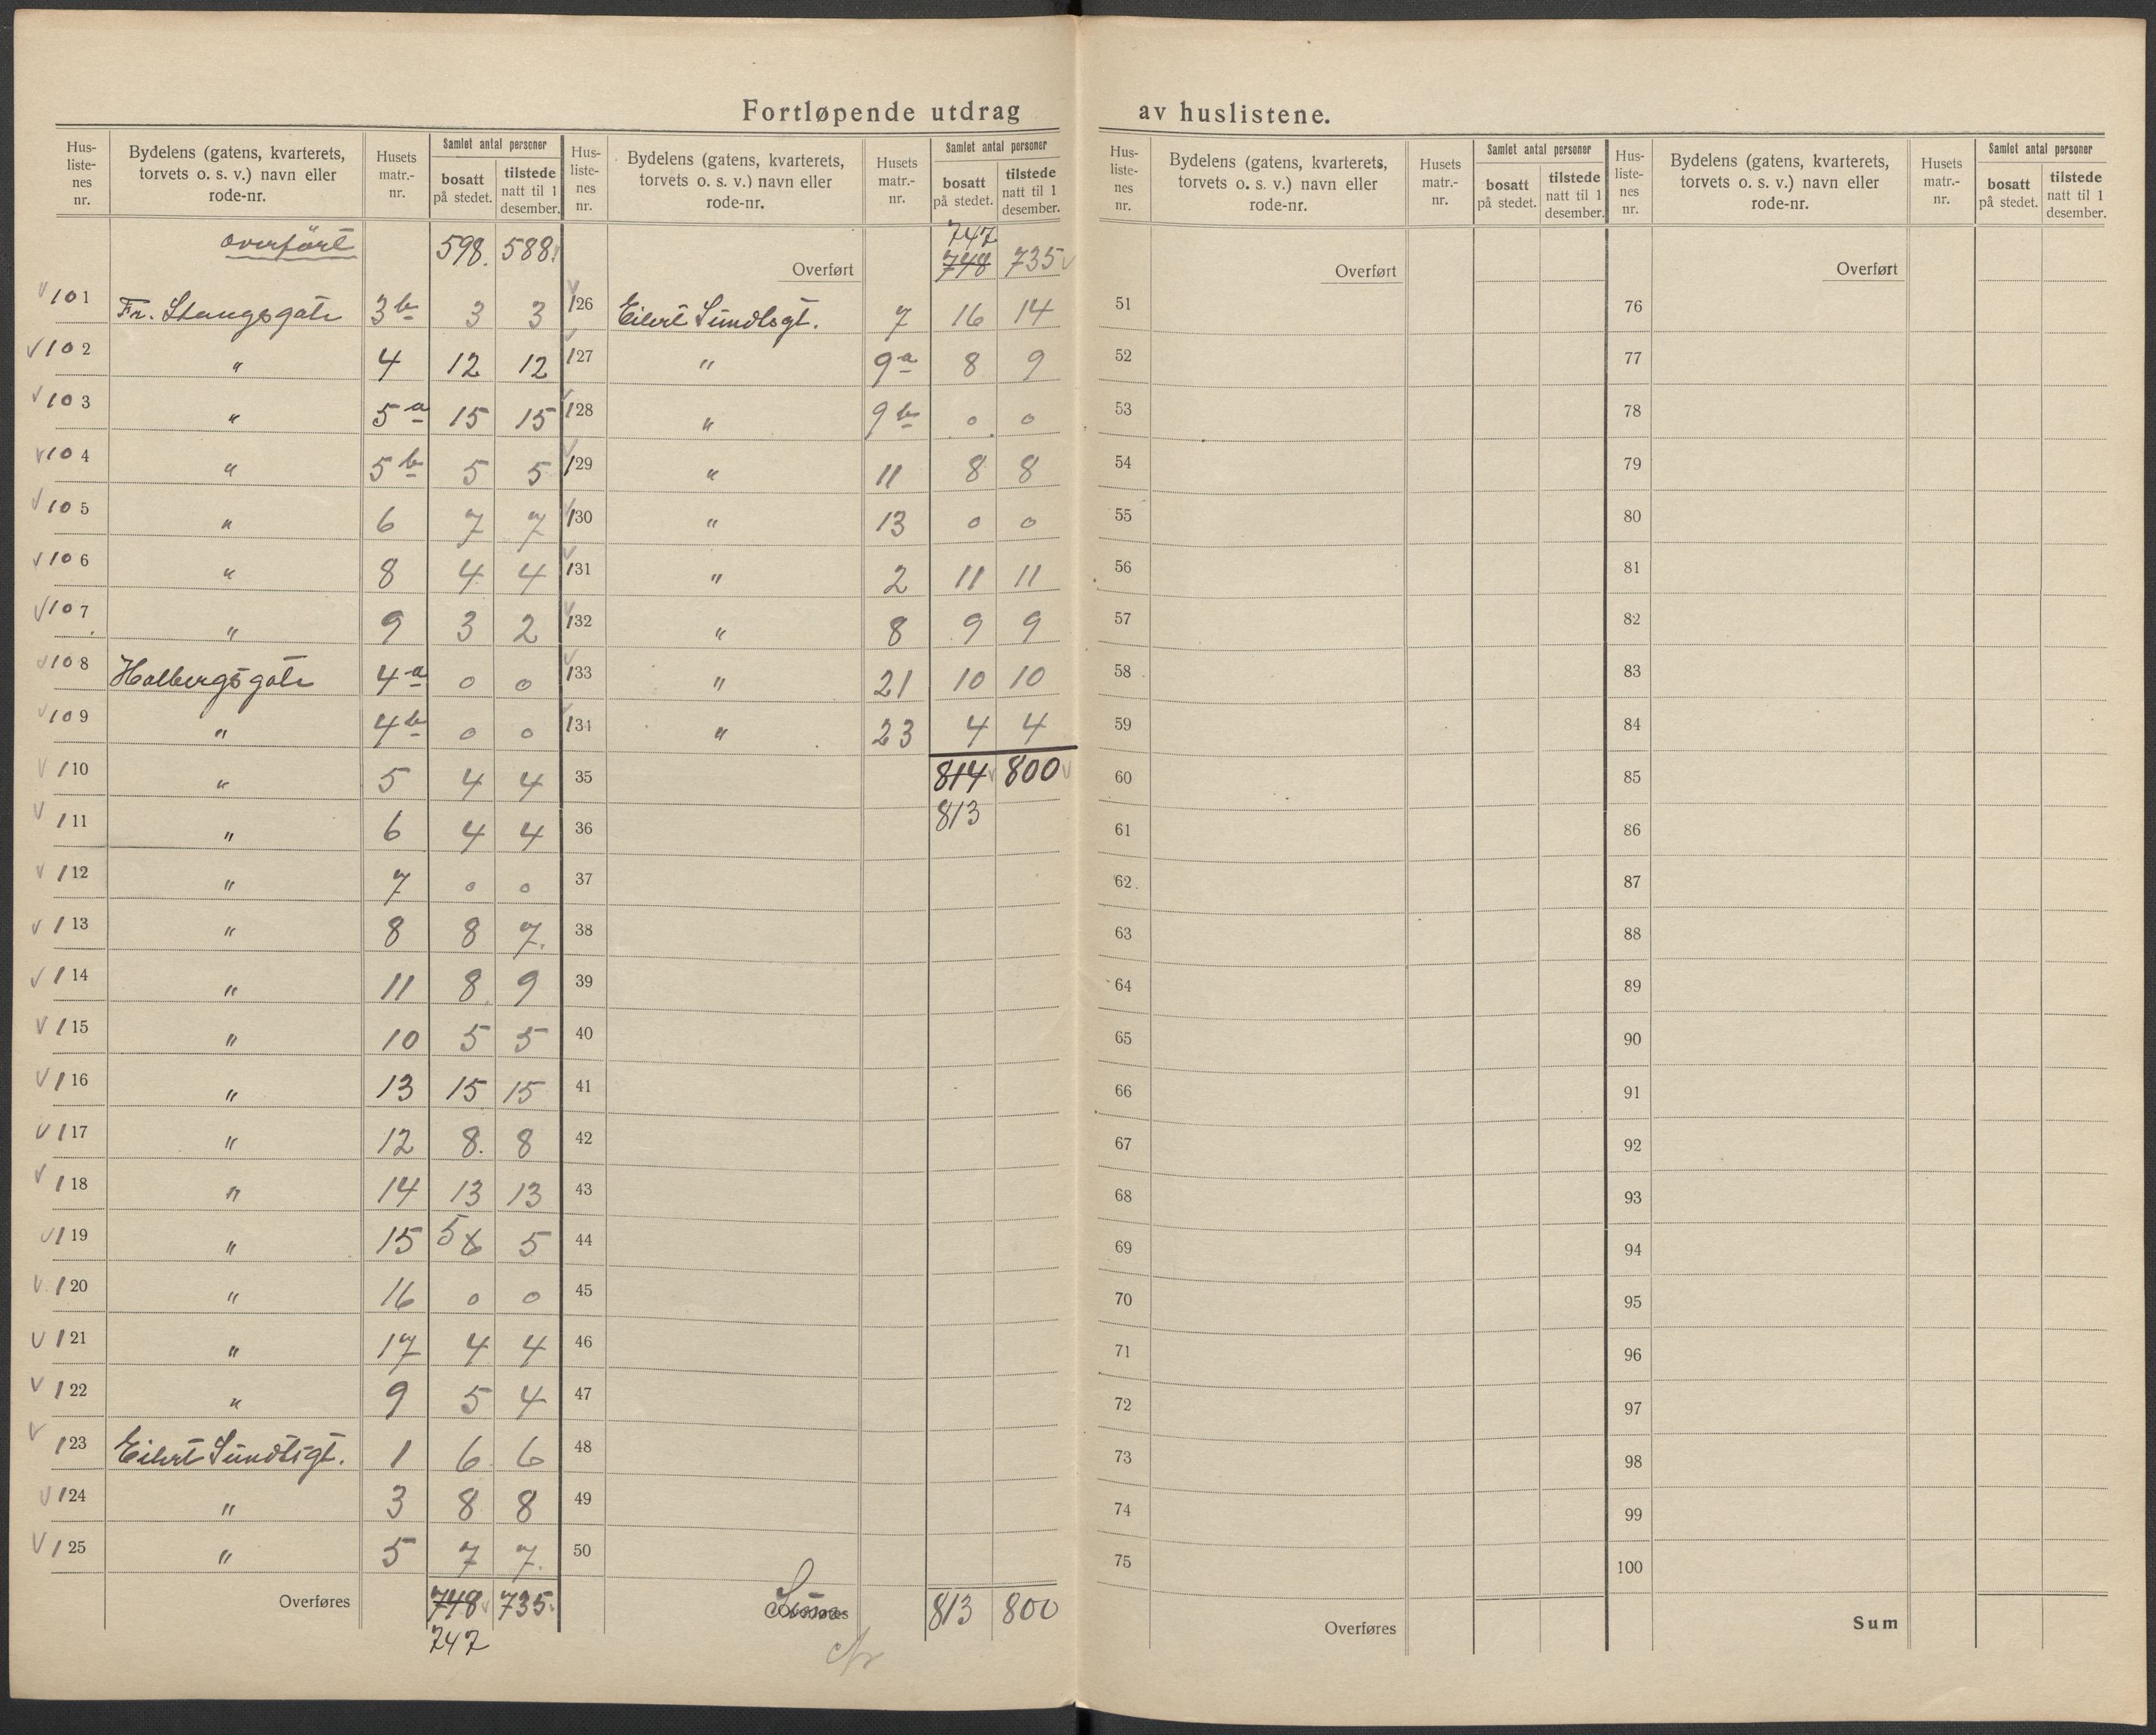 Fortløpende utdrag av huslistene.
Hus-listenes nr. | Bydelens (gatens, kvarterets, torvets o. s. v.) navn eller rode-nr. | Husets matr.-nr. | Samlet antal personer bosatt på stedet. | tilstede natt til 1 desember.
overført 598. 588.
101 Fr. Stangsgate 3b 3 3
102 " 4 12 12
103 " 5a 15 15
104 " 5b 5 5
105 " 6 7 7
106 " 8 4 4
107 " 9 3 2
108 Holbergsgate 4a 0 0
109 " 4b 0 0
110 " 5 4 4
111 " 6 4 4
112 " 7 0 0
113 " 8 8 7.
114 " 11 8 9
115 " 10 5 5
116 " 13 15 15
117 " 12 8. 8
118 " 14 13 13
119 " 15 5 6 5
120 " 16 0 0
121 " 17 4 4
122 " 9 5 4
123 Eilert Sundtsgt. 1 6 6
124 " 3 8 8
125 " 5 7 7.
Overføres 748 735.
747
Hus-listenes nr. | Bydelens (gatens, kvarterets, torvets o. s. v.) navn eller rode-nr. | Husets matr.-nr. | Samlet antal personer bosatt på stedet. | tilstede natt til 1 desember.
747
Overført 748 735
126 Eilert Sundtsgt. 7 16 14
127 " 9a 8 9
128 " 9b 0 0
129 " 11 8 8
130 " 13 0 0
131 " 2 11 11
132 " 8 9 9
133 " 21 10 10
134 " 23 4 4
35 814 800
36 813
37
38
39
40
41
42
43
44
45
46
47
48
49
50
Overføres Sum 813 800
Hus-listenes nr. | Bydelens (gatens, kvarterets, torvets o. s. v.) navn eller rode-nr. | Husets matr.-nr. | Samlet antal personer bosatt på stedet. | tilstede natt til 1 desember.
Overført
51
52
53
54
55
56
57
58
59
60
61
62
63
64
65
66
67
68
69
70
71
72
73
74
75
Overføres
Hus-listenes nr. | Bydelens (gatens, kvarterets, torvets o. s. v.) navn eller rode-nr. | Husets matr.-nr. | Samlet antal personer bosatt på stedet. | tilstede natt til 1 desember.
Overført
76
77
78
79
80
81
82
83
84
85
86
87
88
89
90
91
92
93
94
95
96
97
98
99
100
Sum